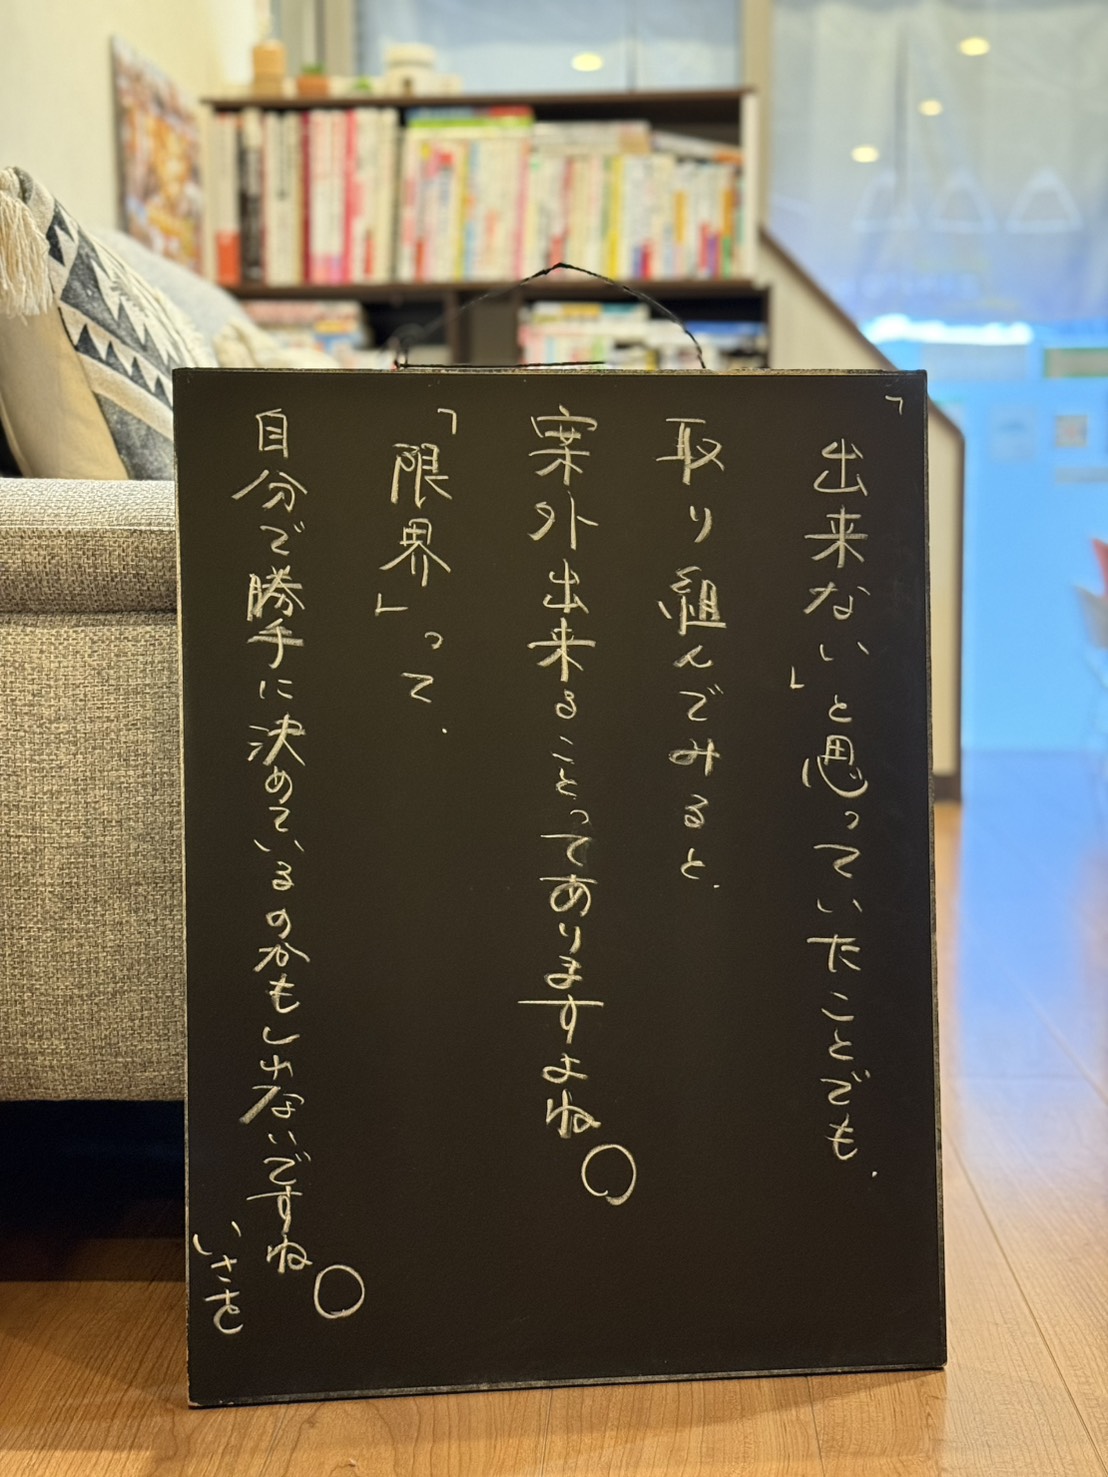 「出来ない」と思っていたことでも、
取り組んでみると、
案外出来ることってありますよね。
「限界」って、
自分で勝手に決めているのかもしれないですね。
いさを